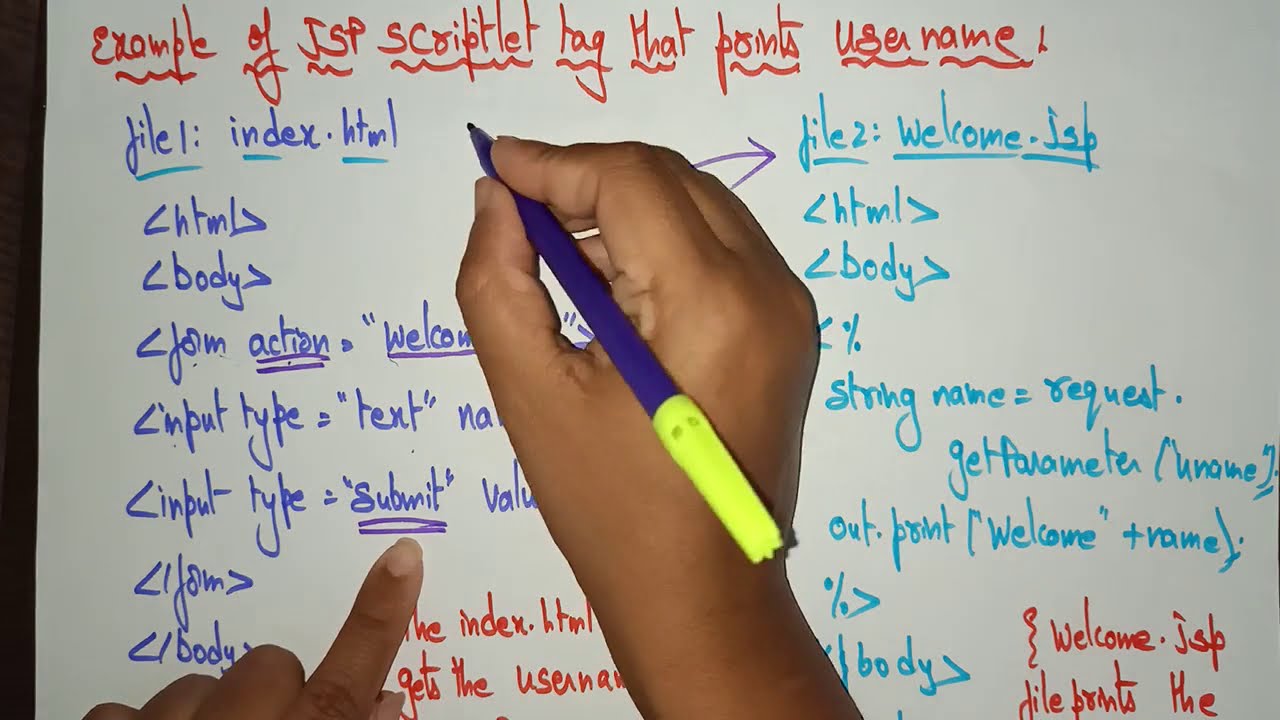 Example of JSP scriptlet tag that prints username.
file1: index.html
<html>
<body>
<form action = "Welcom
<input type = "text"
<input type = "Submit"
</form>
</body>
the index.html
gets the
file2: Welcome.jsp
<html>
<body>
<%
string name = request.
getParameter ("uname");
out.print ("Welcome" + name);
%>
</body>
{ Welcome.jsp
file prints the